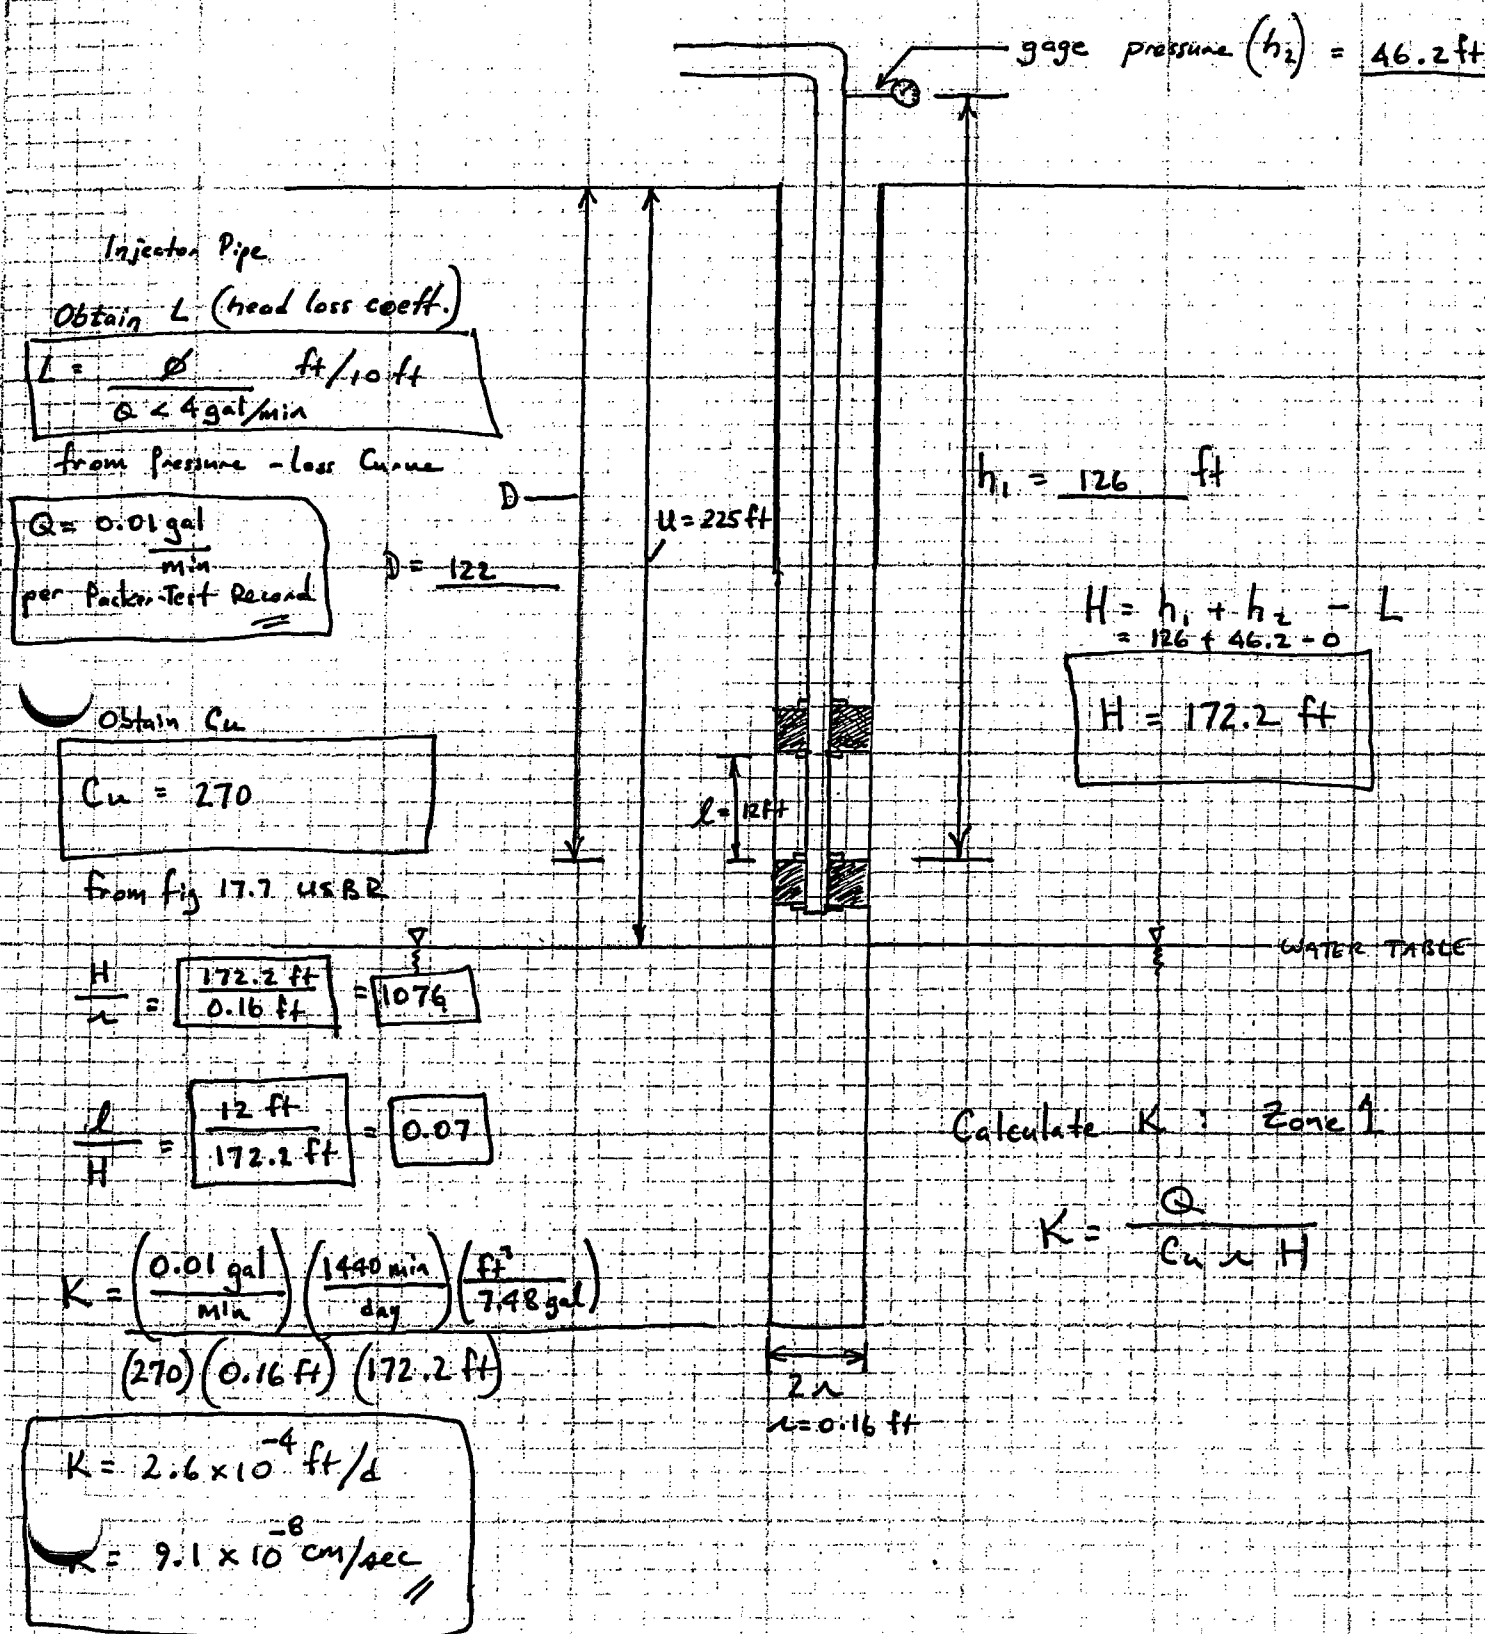 gage pressure (h₂) = 46.2 ft
Injector Pipe
Obtain L (head loss coeff.)
L = Ø ft/10 ft
Q < 4 gal/min
from Pressure-Loss Curve
Q = 0.01 gal
min
per Packer-Test Record
D
D = 122
U = 225 ft
h₁ = 126 ft
H = h₁ + h₂ - L
= 126 + 46.2 - 0
H = 172.2 ft
Obtain Cu
Cu = 270
from fig 17.7 USBR
l = 12ft
WATER TABLE
H/r = 172.2 ft/0.16 ft = 1076
l/H = 12 ft/172.2 ft = 0.07
Calculate K : Zone 1
K = Q/Cu r H
K = (0.01 gal/min) (1440 min/day) (ft³/7.48 gal)
(270) (0.16 ft) (172.2 ft)
2r
r = 0.16 ft
K = 2.6 x 10⁻⁴ ft/d
K = 9.1 x 10⁻⁸ cm/sec